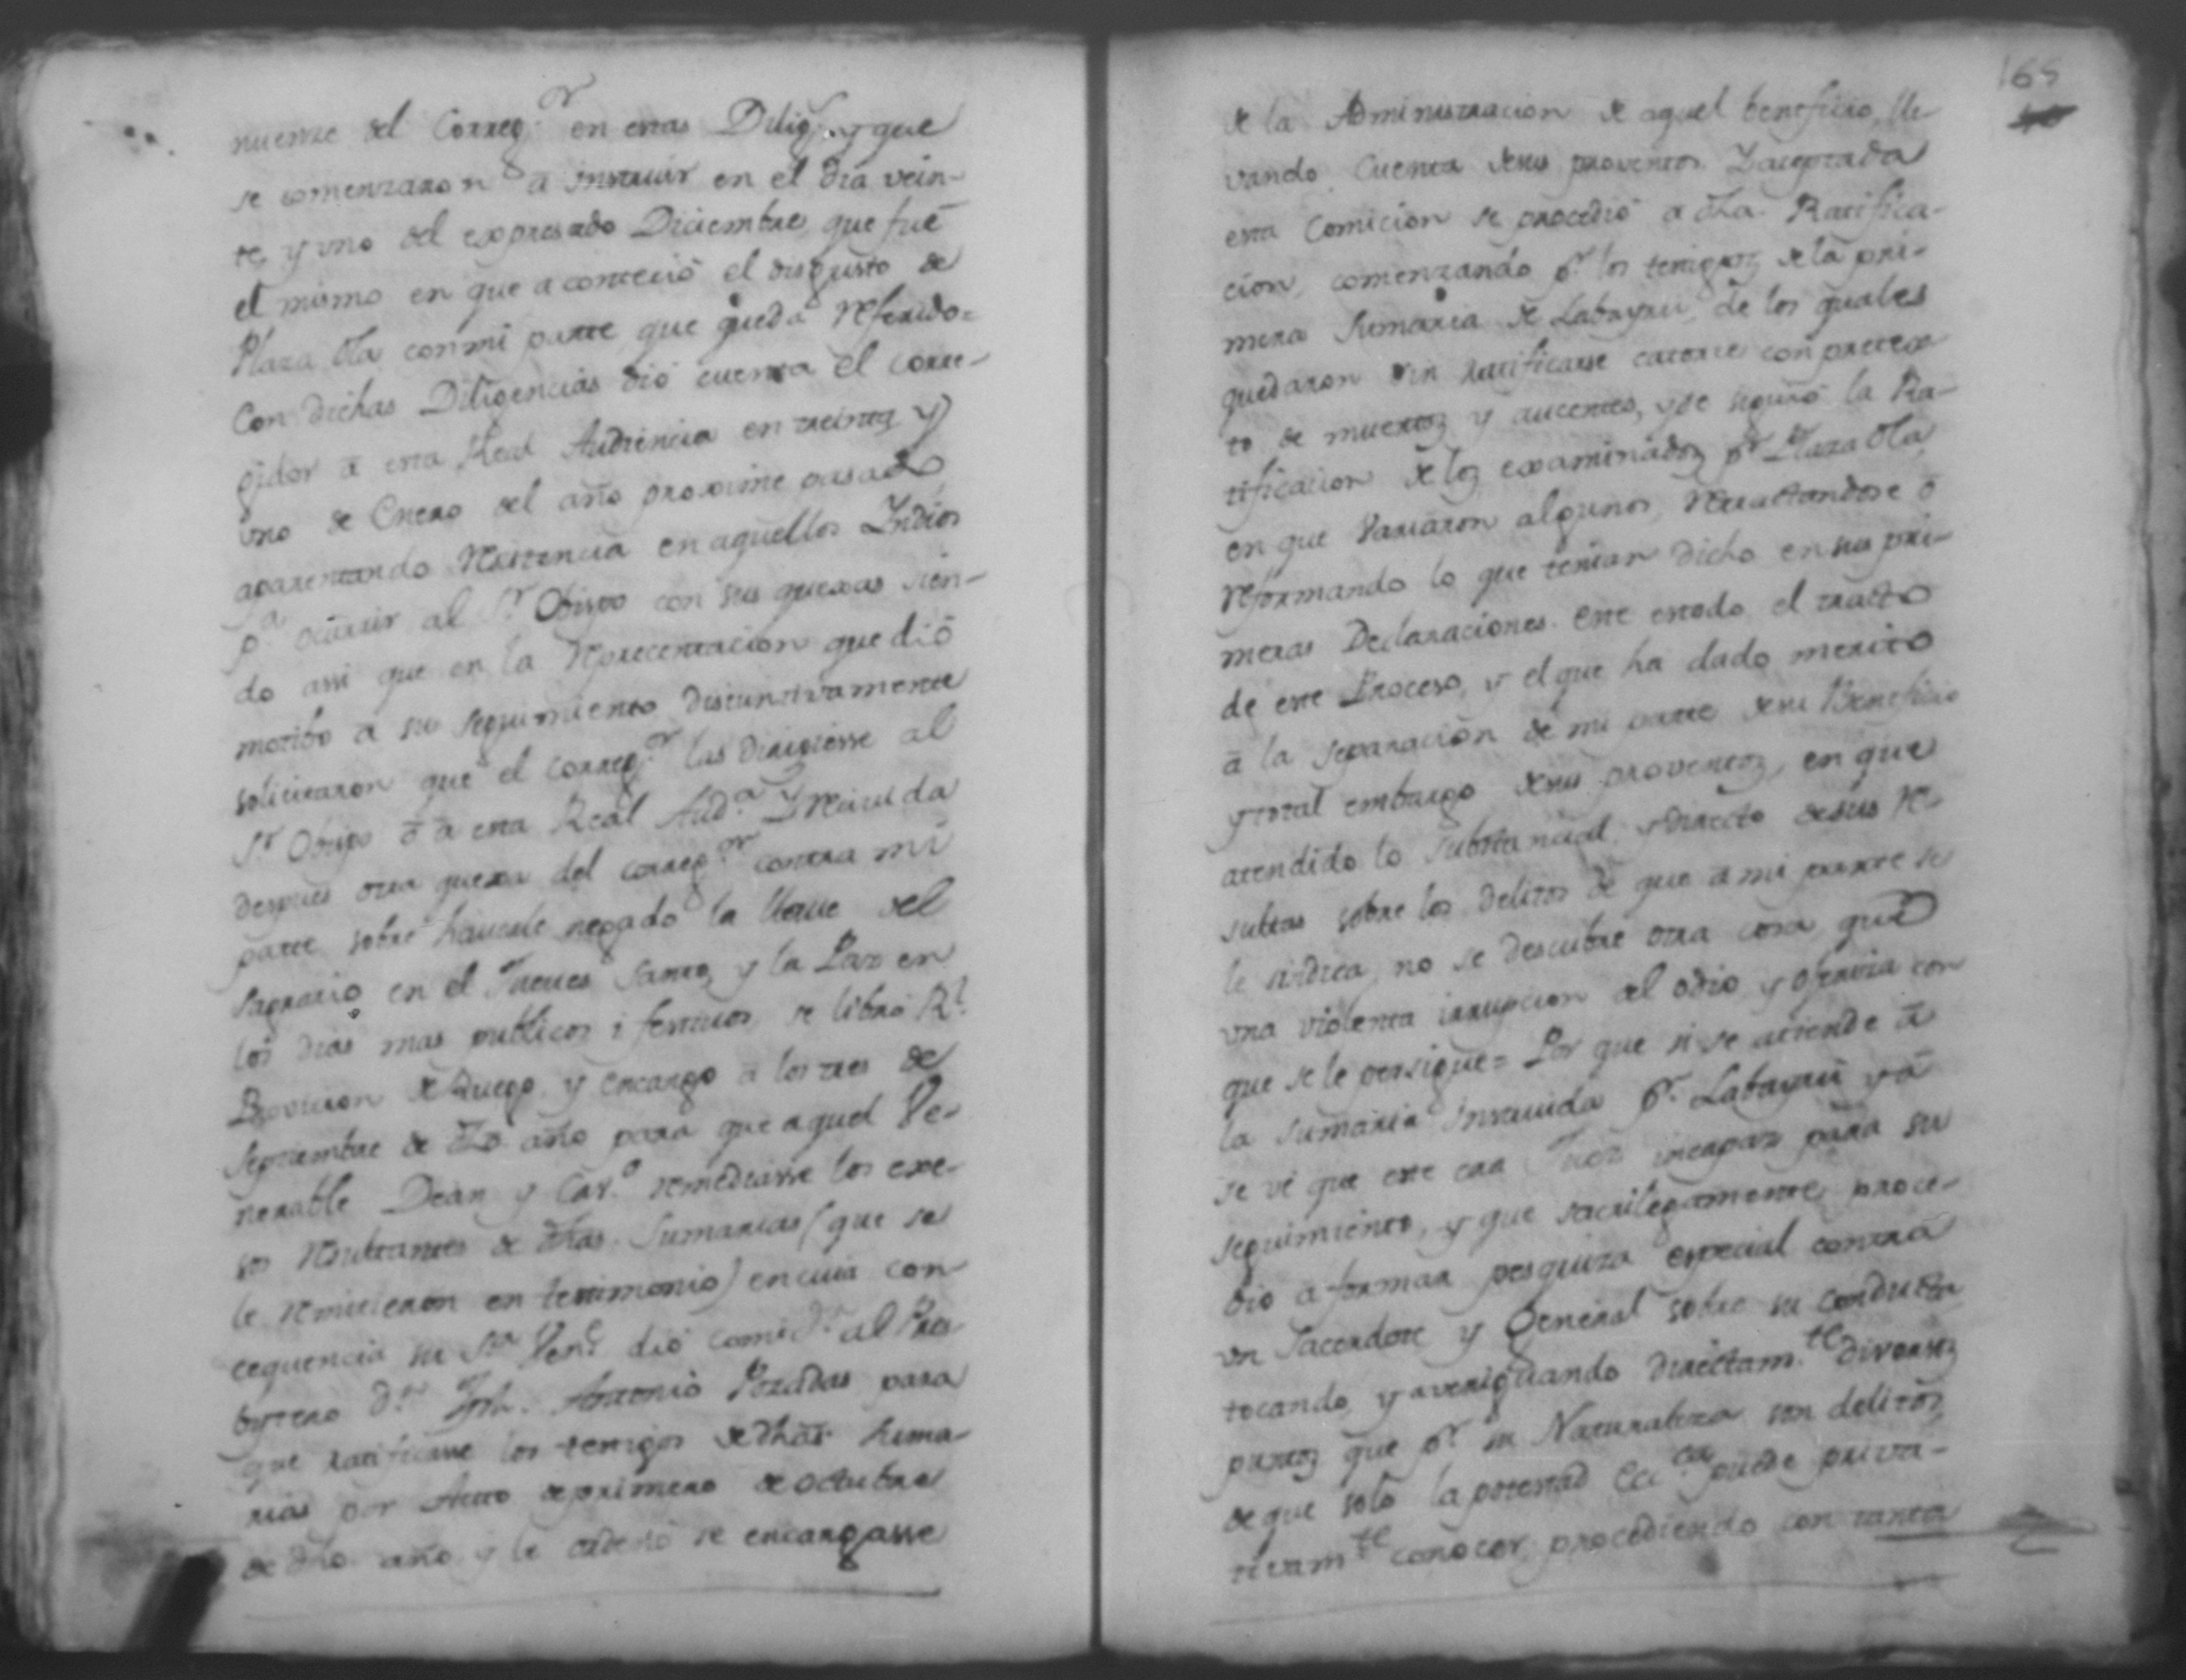 nuente del Correg.or en estas Dilig.s y que
se comenzaron â instruir en el dia vein-
te, y uno del expresado Diciembre que fue
el mismo en que acontecio el disgusto de
Plaza Ola con mi parte que queda referido=
Con dichas Diligencias diò cuenta el corre-
gidor â esta Real Audiencia en treinta y
uno de Enero del año proxime pasado
aparentando resistencia en aquellos Indios
p.a ocurrir al S.r Obispo con sus quexas sien-
do assi que en la representacion que diò
motibo â su seguimiento disiuntivamente
solicitaron que el correg.or las dirigiesse al
S.r Obispo ô â esta Real Aud.a Y recivida
despues otra quexa del correg.or contra mi
parte sobre haverle negado la llave del
Sagrario en el Jueves Santo y la Paz en
los dias mas publicos i festivos se librò R.l
Provicion de Ruego y encargo â los tres de
Septiembre de dho año para que aquel Ve-
nerable Dean y Cav.o remediasse los exe-
sos resultantes de dhas Sumarias (que se
le remitieron en testimonio) en cuia con
cequencia su S.a Ven.e diò comic.n al Pres-
bytero d.n Jph. Antonio Pozadas para
que ratificasse los testigos de dhas suma-
rias por Auto de primero de octubre
de dho año y le ordenò se encargasse
165
de la Administracion de aquel beneficio, lle-
vando Cuenta de sus proventos. Y aceptada
esta Comicion se procediò a dha Ratifica-
cion, comenzando p.r los testigos de la pri-
mera Sumaria de Labayru, de los quales
quedaron sin ratificarse catorce con pretex
to de muertos y aucentes, y se siguiò la Ra-
tificacion de los examinados p.r Plaza Ola,
en que variaron algunos, retractandose ô
reformando lo que tenian dicho en sus pri-
meras Declaraciones. Este es todo el tracto
de este Proceso, y el que ha dado merito
â la separacion de mi parte de su Beneficio
y total embargo de sus proventos, en que
atendido lo substancial, y directo de sus re-
sultas sobre los delitos de que a mi parte se
le sindica, no se descubre otra cosa, que
una violenta irrupcion del odio y ojeriza con
que se le persigue= Por que si se atiende â
la sumaria instruida p.r Labayru ya
se vè que este era Juez incapaz para su
seguimiento, y que sacrilegamente proce-
diò a formar pesquiza especial contra
un Sacerdote y General sobre su conducta
tocando, y averiguando directam.te diversos
puntos que p.r su Naturaleza son delitos
de que solo la potestad Ecc.ca puede priva-
tivam.te conocer, procediendo con tanta